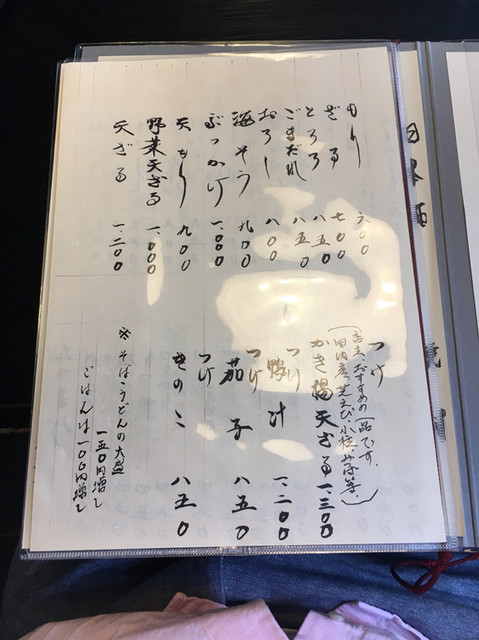 もり 六〇〇
ざる 七〇〇
とろろ 八五〇
ごまだれ 八五〇
おろし 八〇〇
海そう 九〇〇
ぶっかけ 一、〇〇〇
天もり 九〇〇
野菜天ざる 一、〇〇〇
天ざる 一、二〇〇
つけ
かき揚天ざる 一、三〇〇
つけ
鴨汁 一、二〇〇
つけ
茄子 八五〇
つけ
きのこ 八五〇
※そば・うどんの大盛
一五〇円増し
ごはんは一〇〇円増し